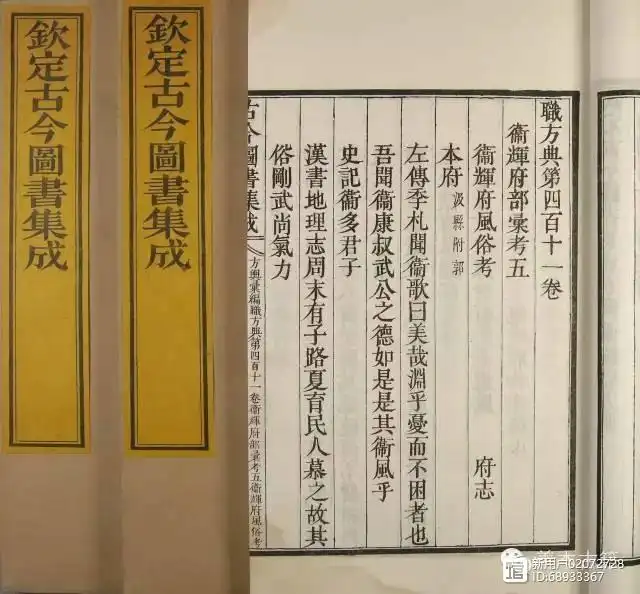 欽定古今圖書集成
欽定古今圖書集成
職方典第四百十一卷
衞輝府部彙考五
衞輝府風俗考 府志
本府 汲縣附郭
左傳季札聞衞歌曰美哉淵乎憂而不困者也
吾聞衞康叔武公之德如是是其衞風乎
史記衞多君子
漢書地理志周末有子路夏育民人慕之故其
俗剛武尚氣力
古今圖書集成 方輿彙編職方典第四百十一卷衞輝府部彙考五衞輝府風俗考
善本古籍
新用户02072728
ID:68933367